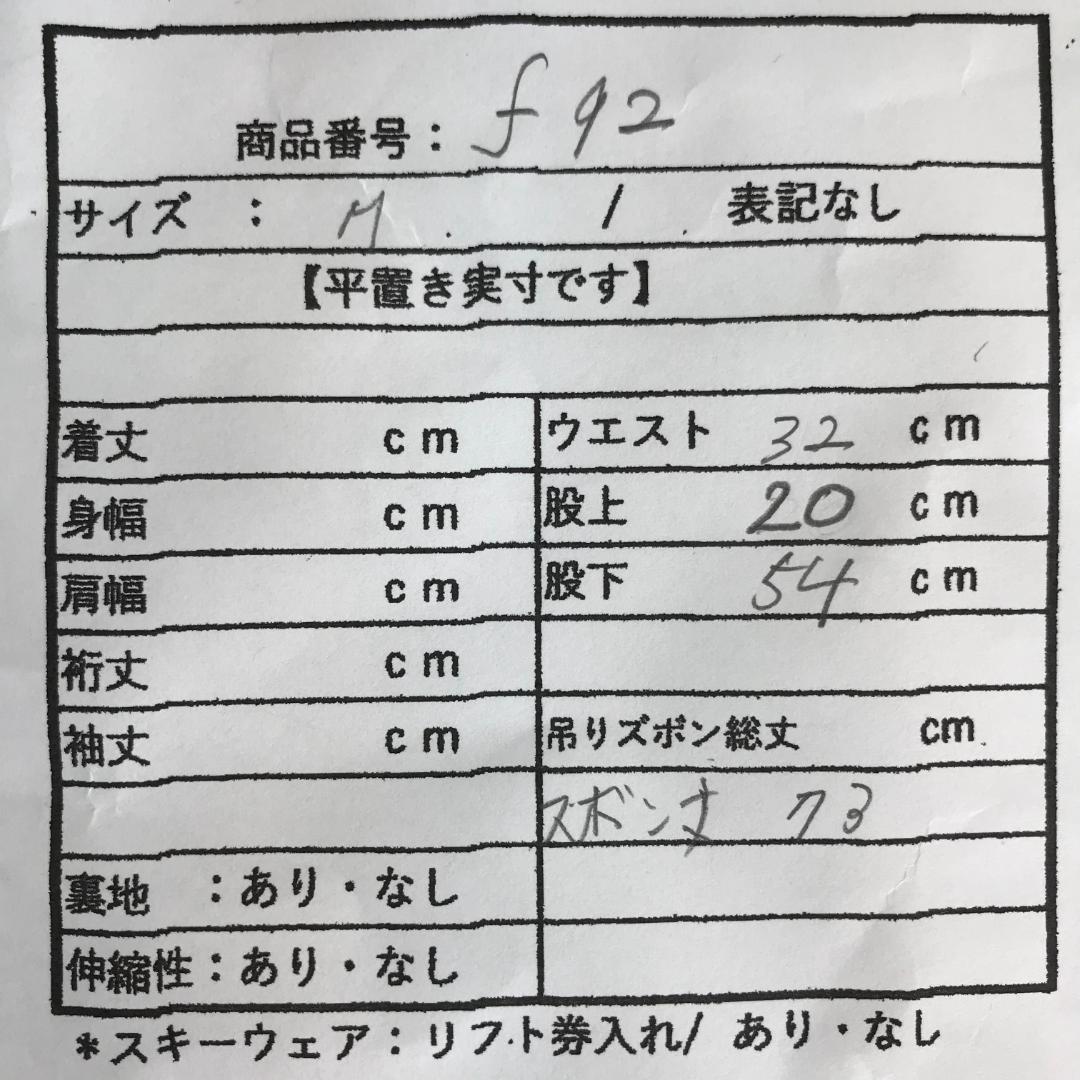 商品番号： f 92
サイズ ： M / 表記なし
【平置き実寸です】
着丈 cm ウエスト 32 cm
身幅 cm 股上 20 cm
肩幅 cm 股下 54 cm
裄丈 cm
袖丈 cm 吊りズボン総丈 cm
ズボン丈 73
裏地 ：あり・なし
伸縮性：あり・なし
*スキーウェア：リフト券入れ/ あり・なし